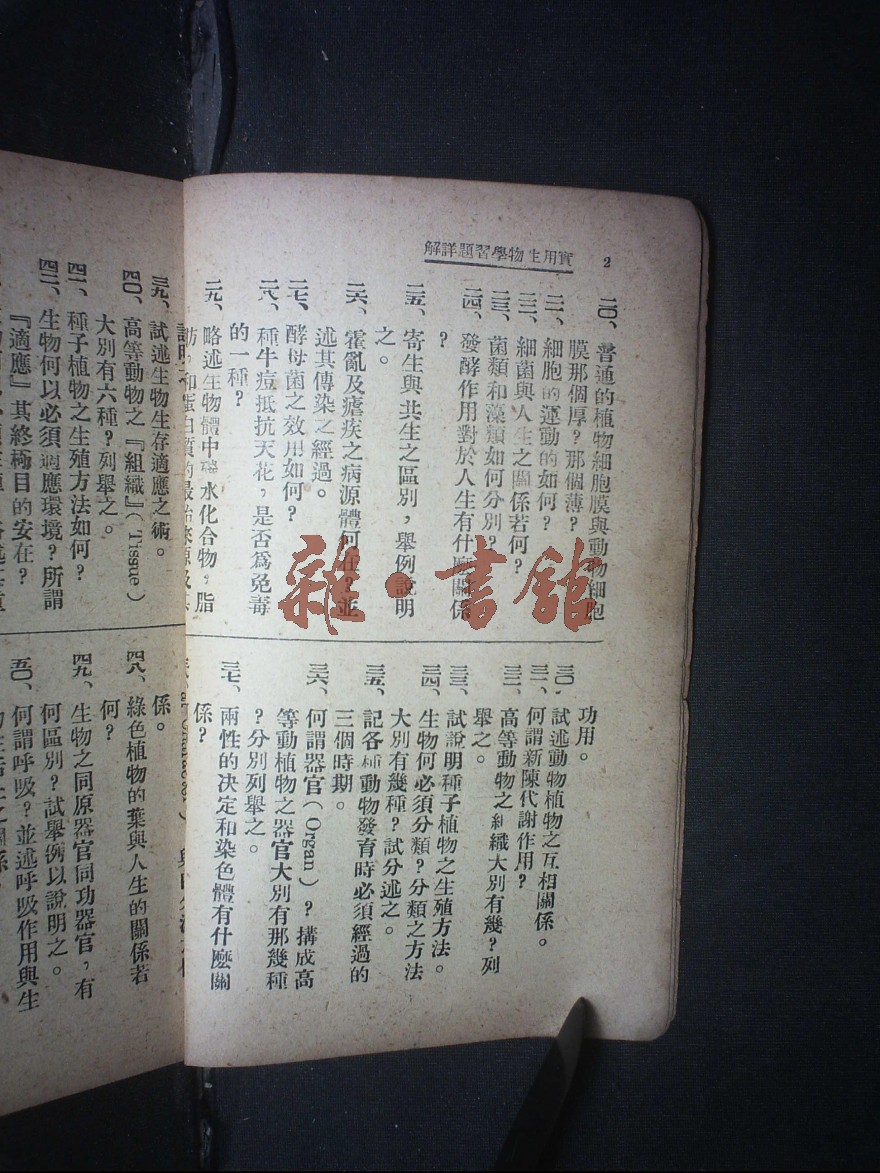 實用生物學習題詳解
2
二〇、普通的植物細胞膜與動物細胞
膜那個厚？那個薄？
二一、細胞的運動的如何？
二二、細菌與人生之關係若何？
二三、菌類和藻類如何分別？
二四、發酵作用對於人生有什麼關係
？
二五、寄生與共生之區別，舉例說明
之。
二六、霍亂及瘧疾之病源體何在？並
述其傳染之經過。
二七、酵母菌之效用如何？
二八、種牛痘抵抗天花，是否為免毒
的一種？
二九、略述生物體中碳水化合物，脂
肪，和蛋白質的最始來源及其
功用。
三〇、試述動物植物之互相關係。
三一、何謂新陳代謝作用？
三二、高等動物之組織大別有幾？列
舉之。
三三、試說明種子植物之生殖方法。
三四、生物何必須分類？分類之方法
大別有幾種？試分述之。
三五、記各種動物發育時必須經過的
三個時期。
三六、何謂器官（Organ）？搆成高
等動植物之器官大別有那幾種
？分別列舉之。
三七、兩性的決定和染色體有什麼關
係？
說明之。
三九、試述生物生存適應之術。
四〇、高等動物之『組織』（Tissue）
大別有六種？列舉之。
四一、種子植物之生殖方法如何？
四二、生物何以必須適應環境？所謂
『適應』其終極目的安在？
係。
四八、綠色植物的葉與人生的關係若
何？
四九、生物之同原器官同功器官，有
何區別？試舉例以說明之。
五〇、何謂呼吸？並述呼吸作用與生
雜·書館